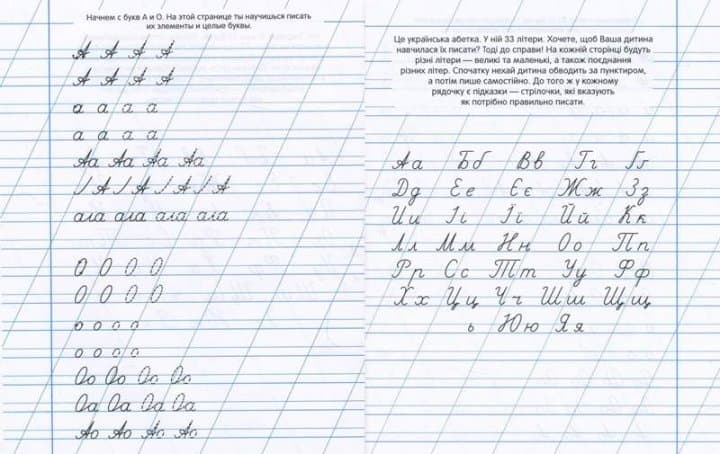 Начнем с букв А и О. На этой странице ты научишься писать
их элементы и целые буквы.
А А А А
А А А А
а а а а
а а а а
Аа Аа Аа Аа
/ А / А / А / А
ала ала ала ала
О О О О
О О О О
о о о о
о о о о
Оо Оо Оо Оо
Оа Оа Оа Оа
Ао Ао Ао Ао
Це українська абетка. У ній 33 літери. Хочете, щоб Ваша дитина
навчилася їх писати? Тоді до справи! На кожній сторінці будуть
різні літери — великі та маленькі, а також поєднання
різних літер. Спочатку нехай дитина обводить за пунктиром,
а потім пише самостійно. До того ж у кожному
рядочку є підказки — стрілочки, які вказують
як потрібно правильно писати.
Аа Бб Вв Гг Ґґ
Дд Ее Єє Жж Зз
Ии Іі Її Йй Кк
Лл Мм Нн Оо Пп
Рр Сс Тт Уу Фф
Хх Цц Чч Шш Щщ
ь Юю Яя